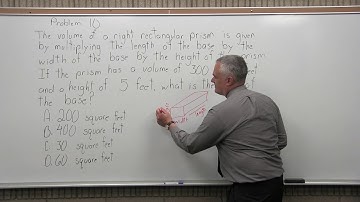 Problem 10
The volume of a right rectangular prism is given
by multiplying the length of the base by the
width of the base by the height of the prism
If the prism has a volume of 300
and a height of 5 feet, what is the
the base?
A. 200 square feet
B. 400 square feet
C. 30 square feet
D. 60 square feet